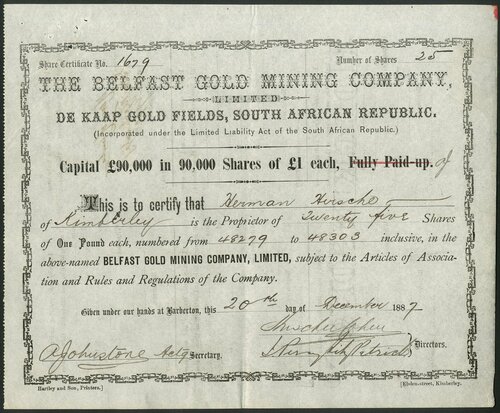 Share Certificate No. 1679 Number of Shares 25
THE BELFAST GOLD MINING COMPANY,
LIMITED
DE KAAP GOLD FIELDS, SOUTH AFRICAN REPUBLIC.
(Incorporated under the Limited Liability Act of the South African Republic.)
Capital £90,000 in 90,000 Shares of £1 each, Fully Paid-up.
This is to certify that Herman Hirsche
of Kimberley is the Proprietor of Twenty five Shares
of One Pound each, numbered from 48279 to 48303 inclusive, in the
above-named BELFAST GOLD MINING COMPANY, LIMITED, subject to the Articles of Associa-
tion and Rules and Regulations of the Company.
Given under our hands at Barberton, this 20th day of December 1887
Directors.
A Johnstone Actg Secretary.
Hartley and Son, Printers.] [Ebden-street, Kimberley.